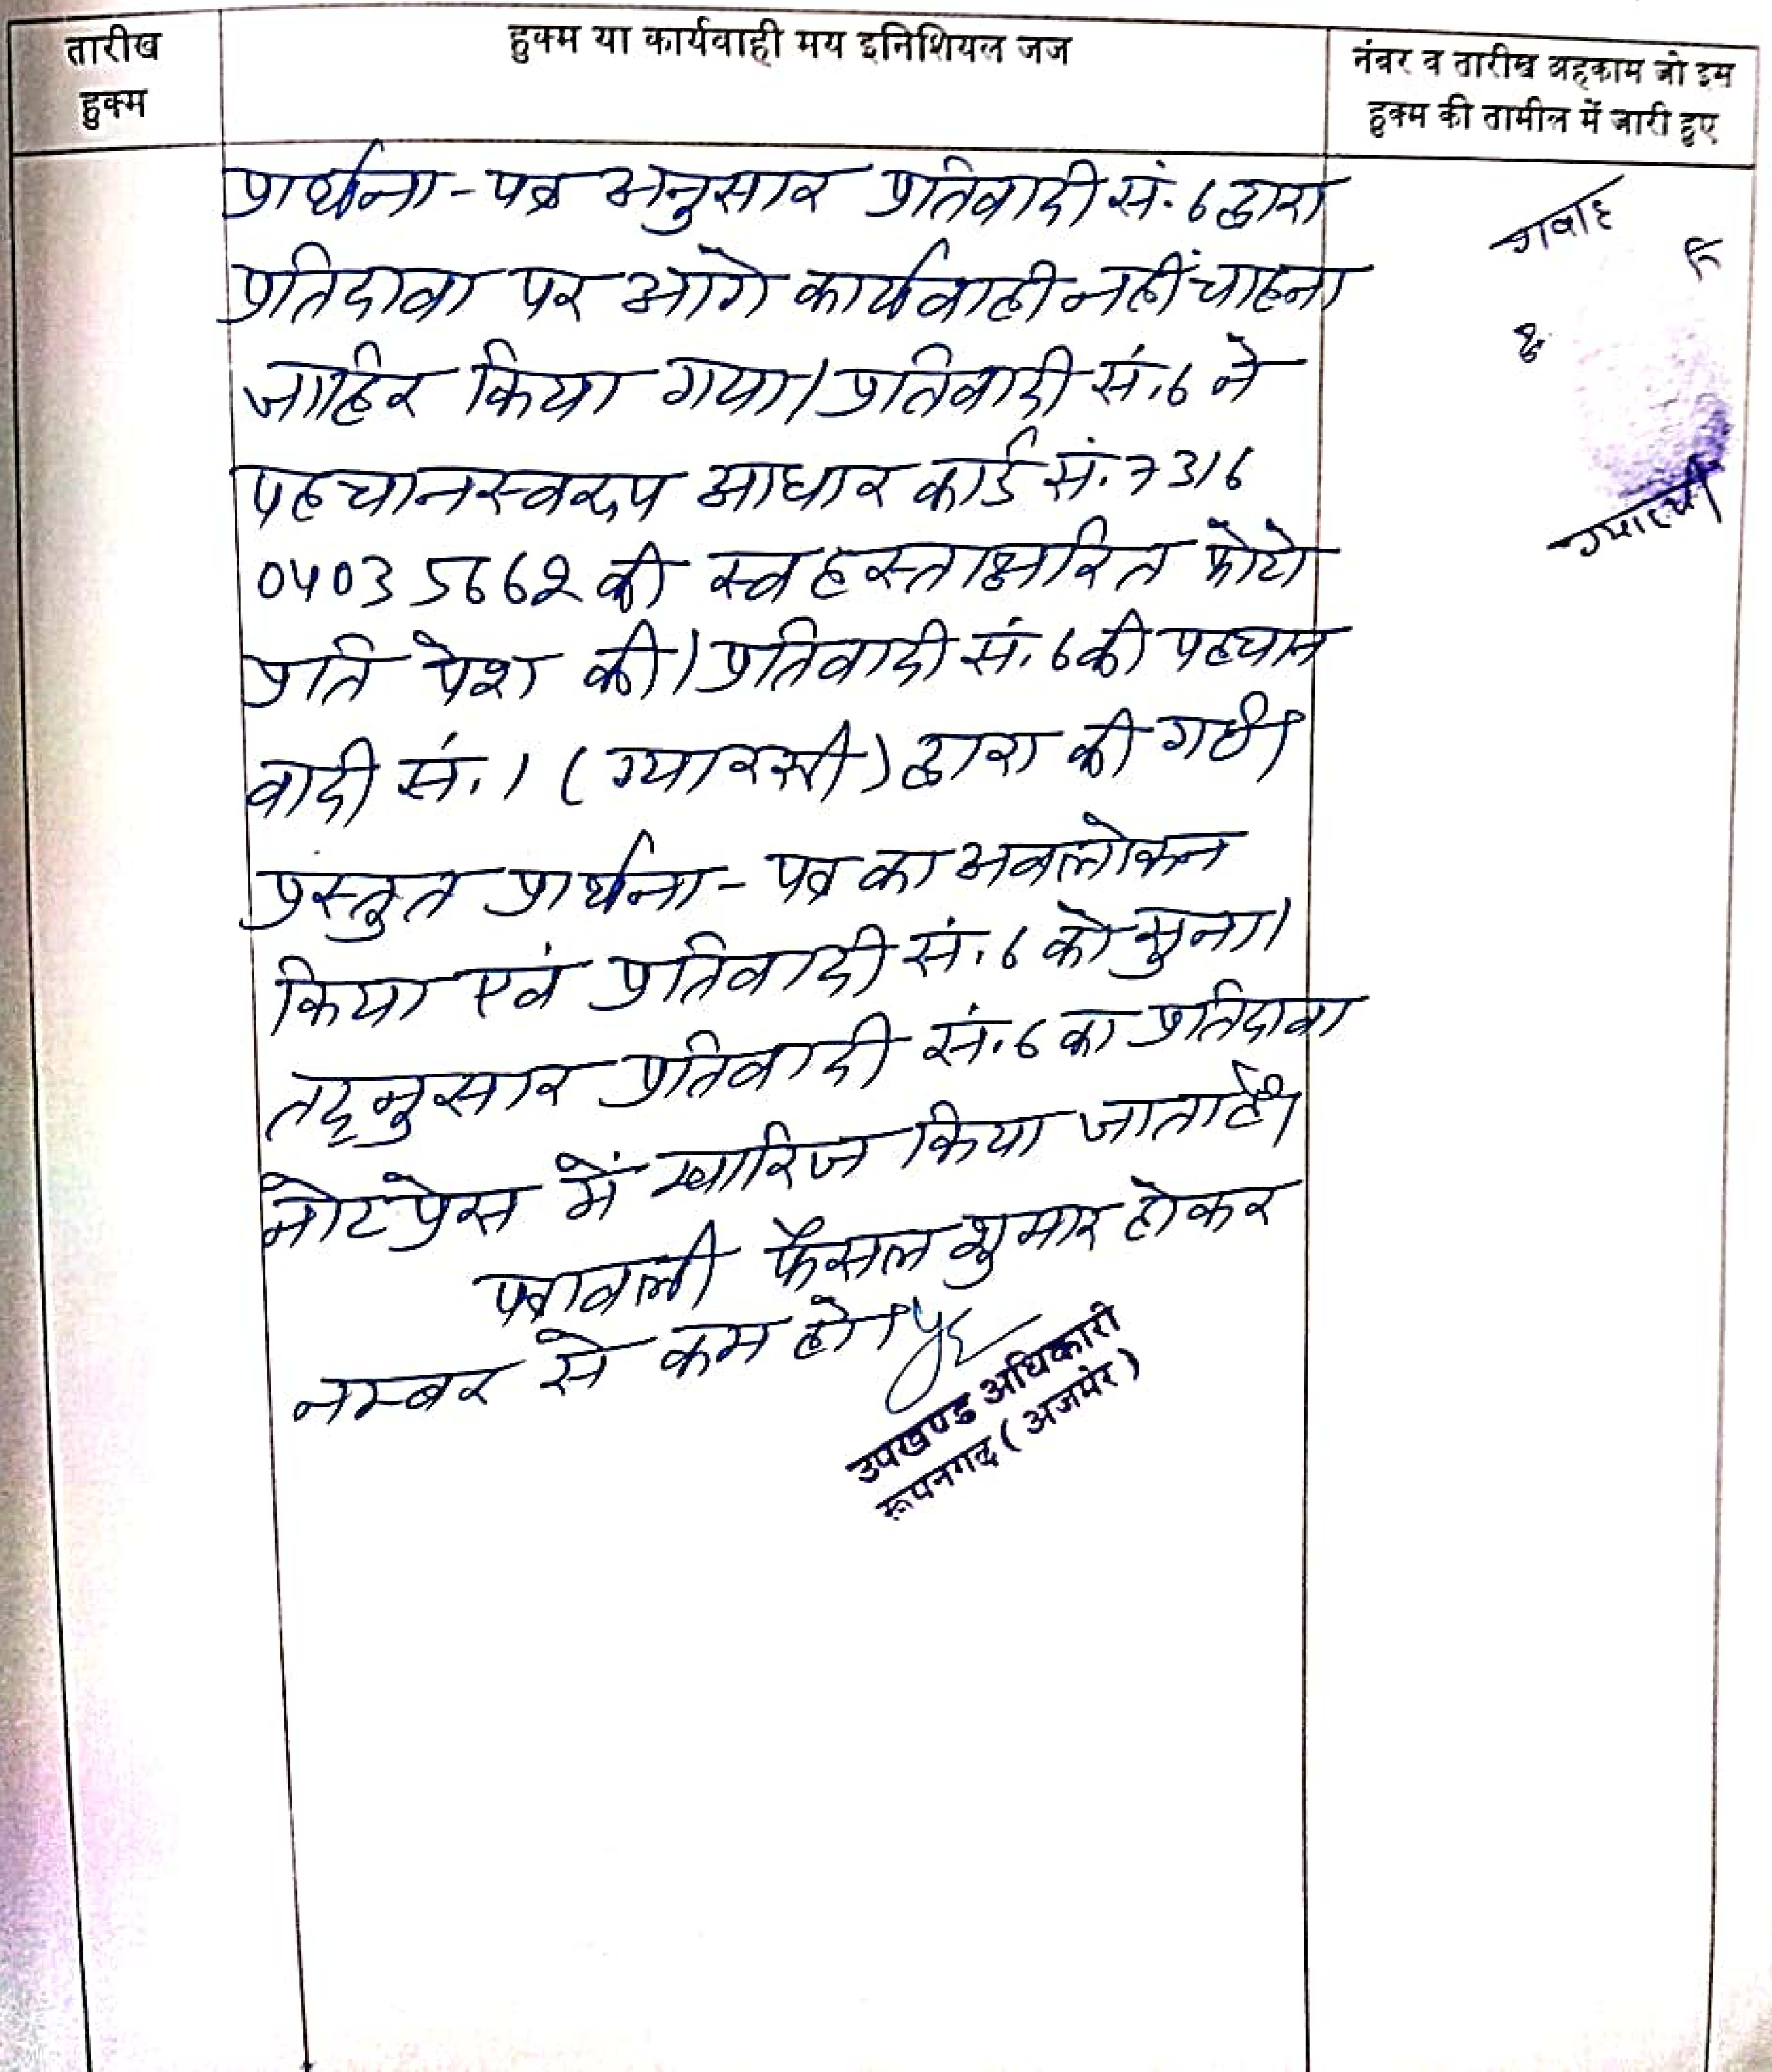 तारीख
हुक्म
हुक्म या कार्यवाही मय इनिशियल जज
नंबर व तारीख अहकाम जो इस
हुक्म की तामील में जारी हुए
प्रार्थना-पत्र अनुसार प्रतिवादी सं. 6 द्वारा
प्रतिदावा पर आगे कार्यवाही नहीं चाहना
जाहिर किया गया। प्रतिवादी सं. 6 ने
पहचानस्वरूप आधार कार्ड सं. 7316
0403 5662 की स्वहस्ताक्षरित फोटो
प्रति पेश की। प्रतिवादी सं. 6 की पहचान
वादी सं. 1 (ग्यारसी) द्वारा की गई।
प्रस्तुत प्रार्थना-पत्र का अवलोकन
किया एवं प्रतिवादी सं. 6 को सुना।
तद्नुसार प्रतिवादी सं. 6 का प्रतिदावा
नोटप्रेस में खारिज किया जाता है।
पत्रावली फैसल शुमार होकर
नम्बर से कम हो।
उपखण्ड अधिकारी
रूपनगढ़ (अजमेर)
गवाह
ग्यारसी